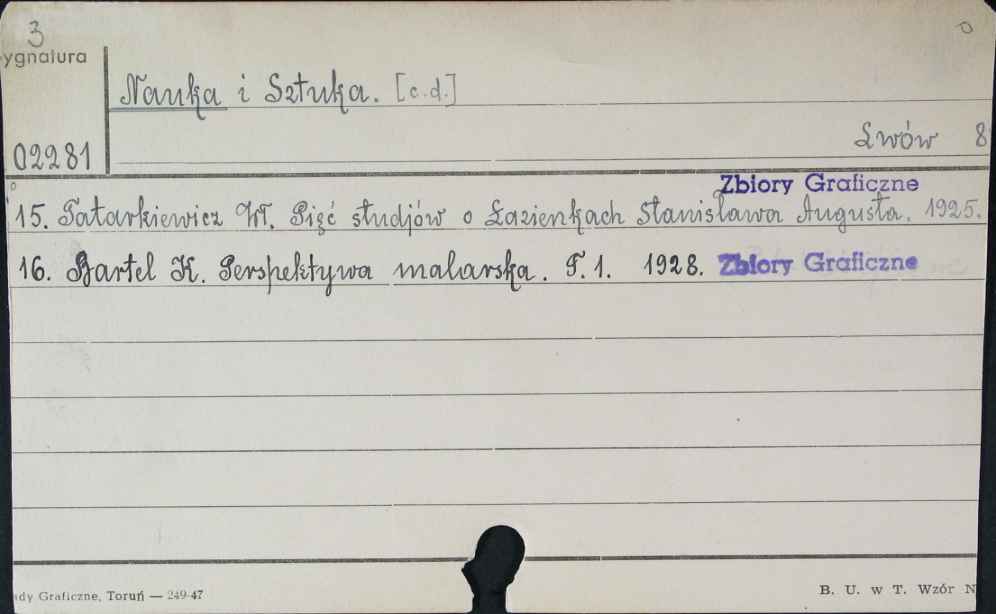 3
ygnatura
Nauka i Sztuka. [c.d.]
Lwów 8
02281
Zbiory Graficzne
15. Tatarkiewicz Wł. Pięć studjów o Łazienkach Stanisława Augusta. 1925.
16. Bartel K. Perspektywa malarska. T. 1. 1928. Zbiory Graficzne
ady Graficzne, Toruń — 249-47
B. U. w T. Wzór N